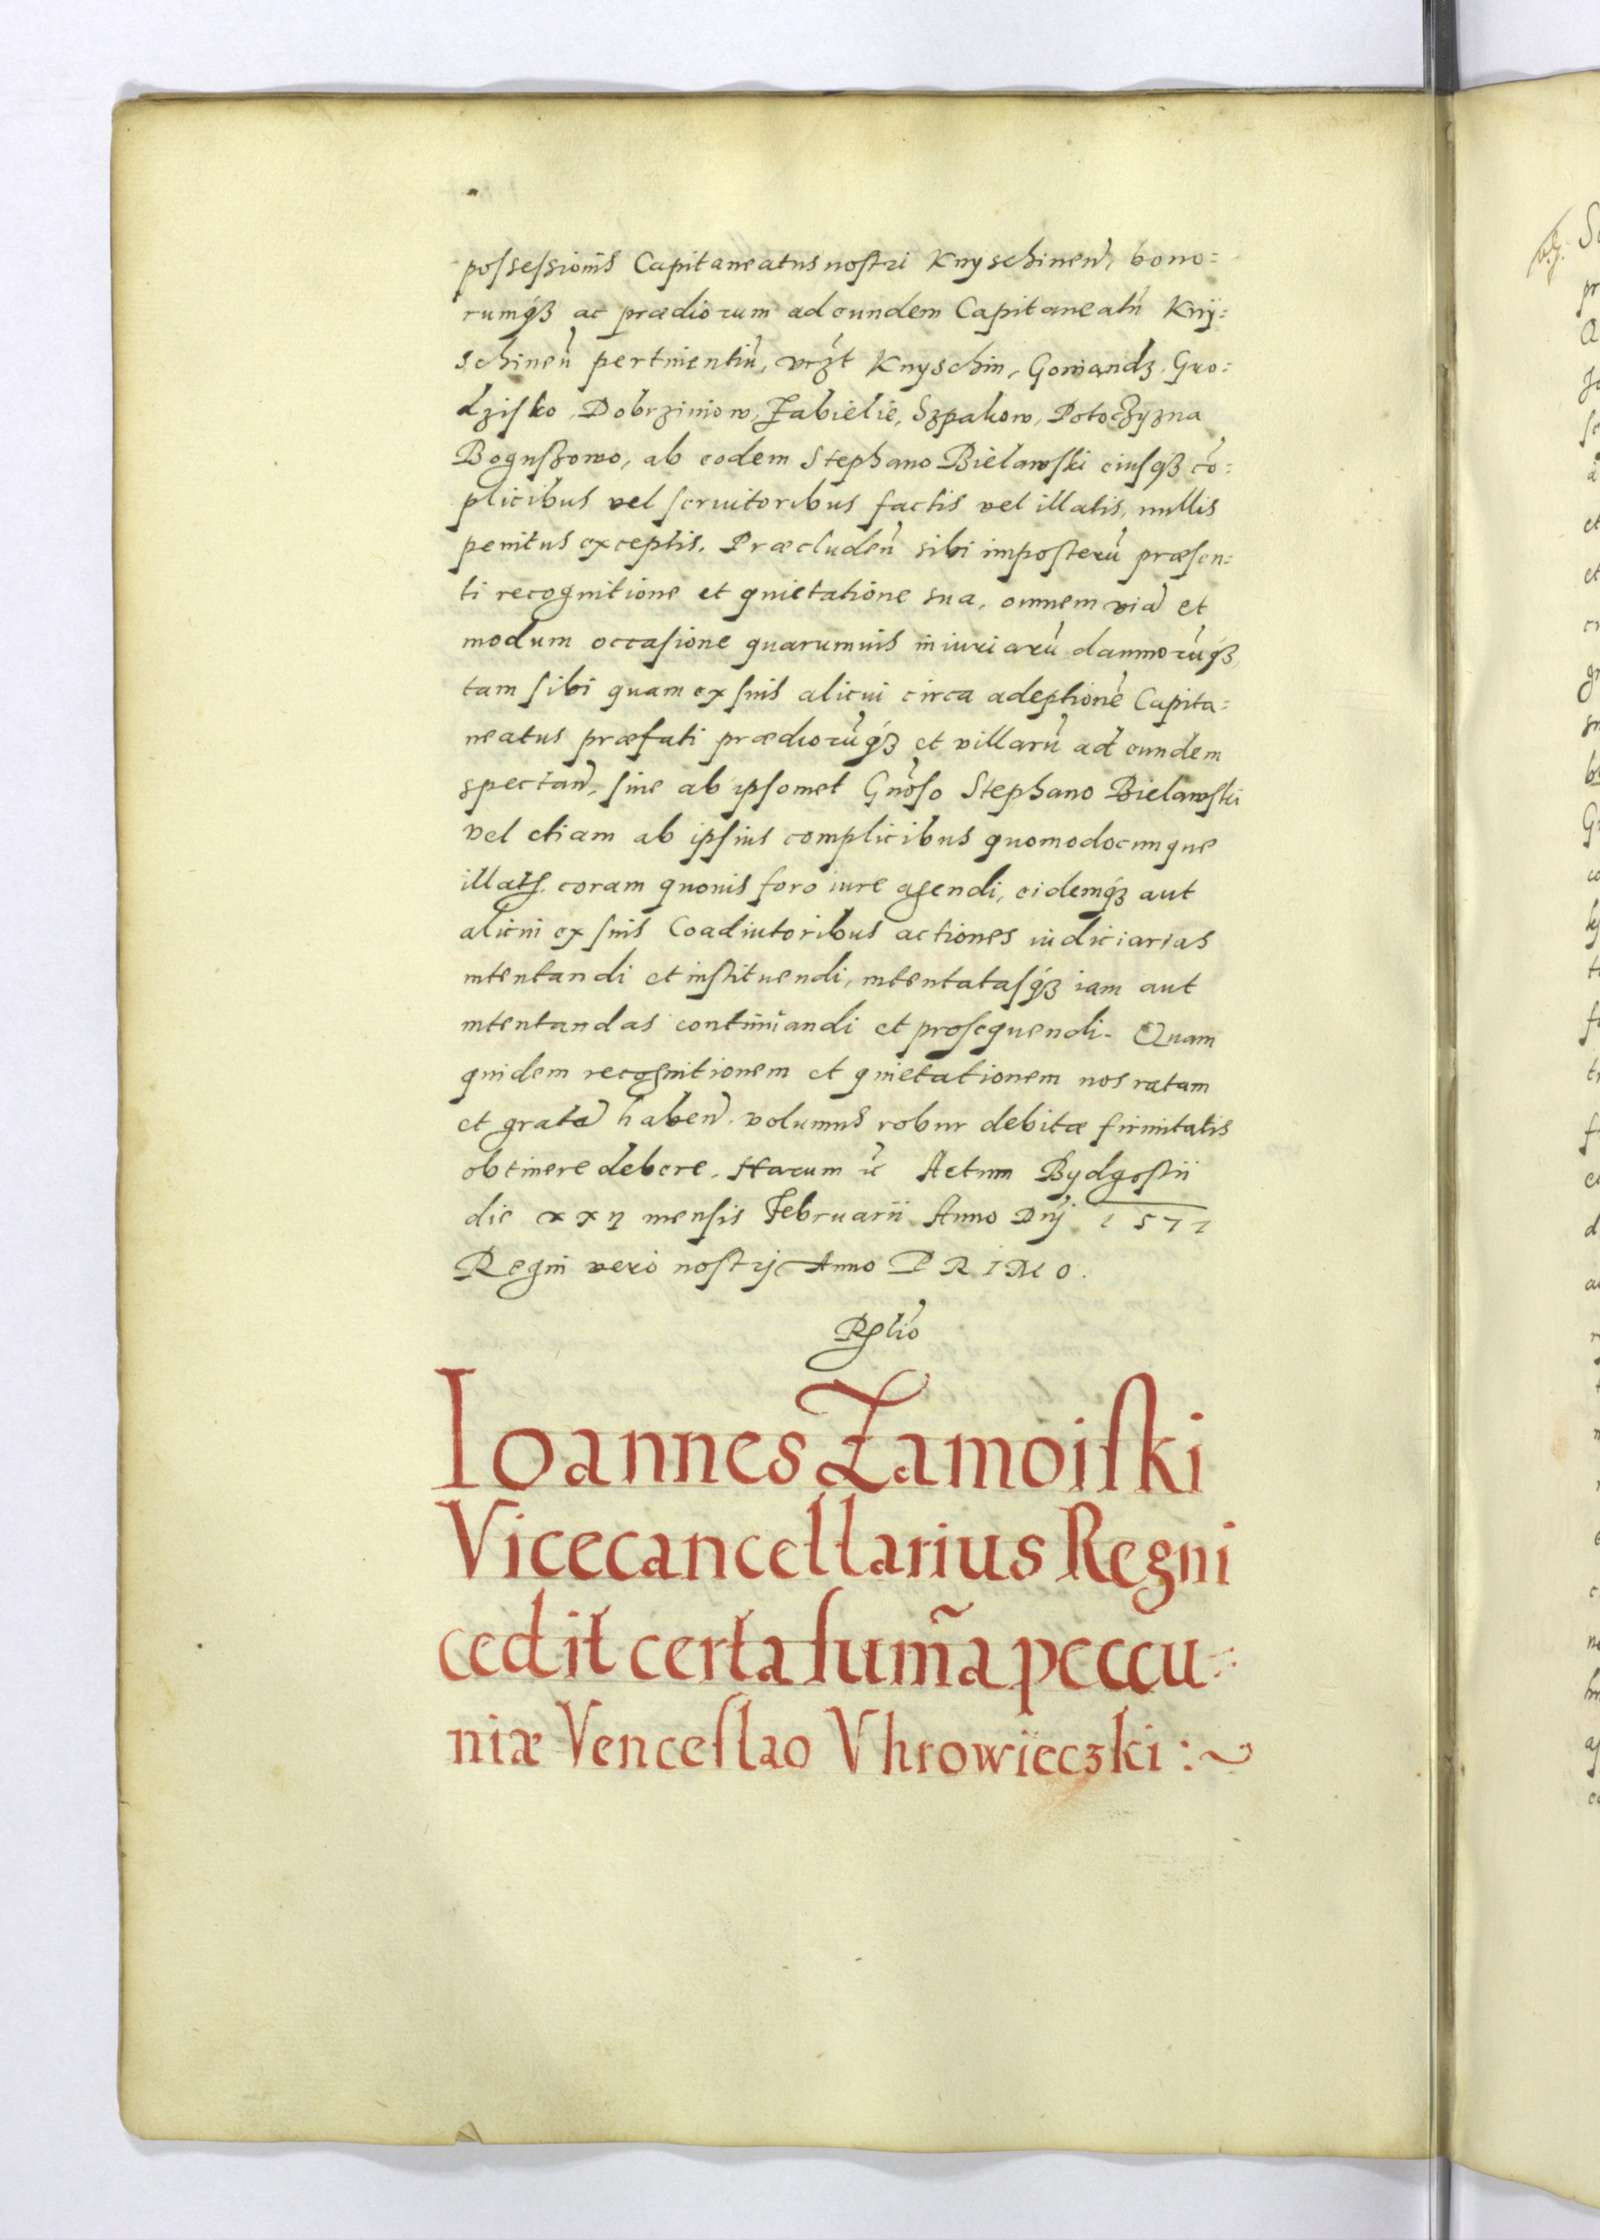 possessionis Capitaneatus nostri Knyschinen̄, bono=
rumq́ȝ ac prædiorum ad eundem Capitaneatū Knÿ=
schineū pertinentiū, vrȝt Knyschin, Goniandz, Gro=
dzisko, Dobrziniow, Zabielie, Szpakow, Potoczyzna
Boguszowo, ab eodem Stephano Bielawski eiusq́ȝ cō=
plicibus vel seruitoribus factis vel illatis, nullis
penitus exceptis. Præcluden̄ sibi imposterū præsen=
ti recognitione et quietatione sua, omnem viā et
modum occasione quarumuis iniuriarū damnorūq́ȝ,
tam sibi quam ex suis alicui circa adeptionē Capita=
neatus præfati prædiorūq́ȝ et villarū ad eundem
spectan̄, siue ab ipsomet Gnōso Stephano Bielawski
vel etiam ab ipsius complicibus quomodocunque
illatꝭ. coram quouis foro iure agendi, eidemq́ȝ aut
alicui ex suis Coadiutoribus actiones iudiciarias
intentandi et instituendi, intentatasq́ȝ iam aut
intentandas continuandi et prosequendi. Quam
quidem recognitionem et quietationem nos ratam
et gratā haben̄. volumus robur debitæ firmitatis
obtinere debere. Harum Actum Bydgostii
die mensis Februarii Anno Dnj̄ 1577
Regni vero nostrj Anno PRIMO.
Rꝭlīo
Ioannes Zamoiski
Vicecancellarius Regni
cedit certa sum̃a peccu=
niæ Venceslao Vhrowieczki :~